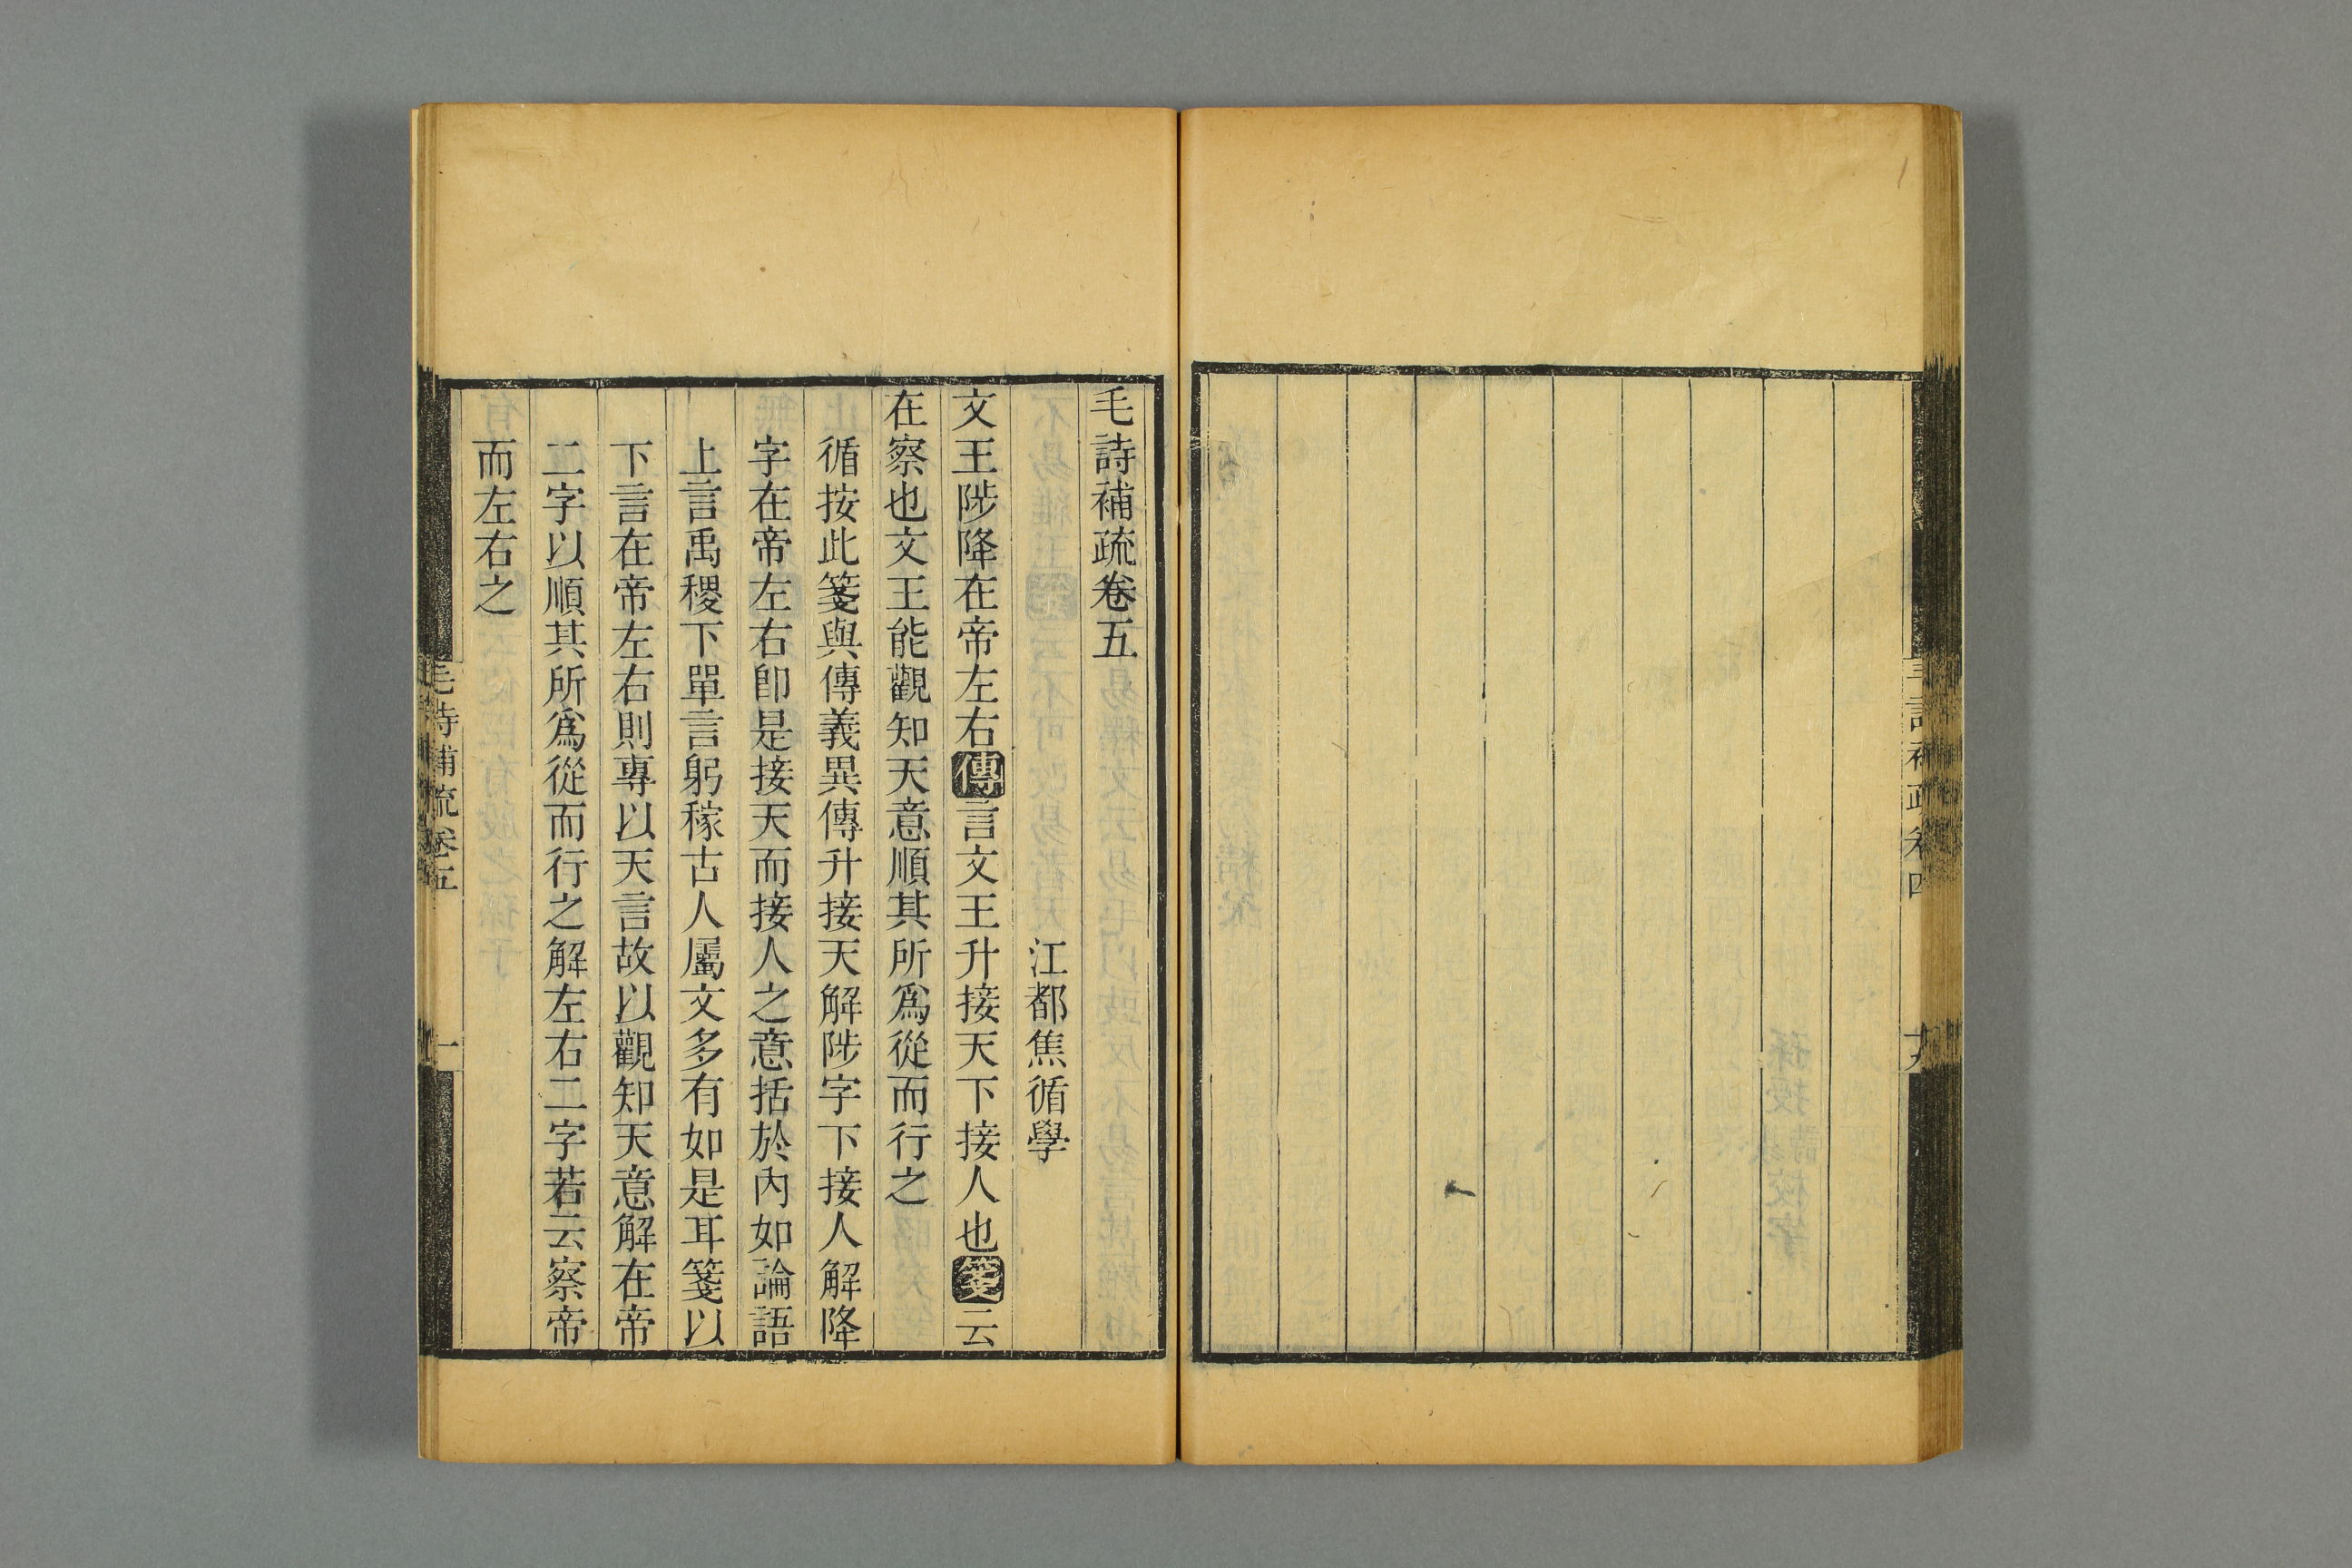 毛詩補疏卷五
江都焦循學
文王陟降在帝左右傳言文王升接天下接人也箋云
在察也文王能觀知天意順其所爲從而行之
循按此箋與傳義異傳升接天解陟字下接人解降
字在帝左右卽是接天而接人之意括於內如論語
上言禹稷下單言躬稼古人屬文多有如是耳箋以
下言在帝左右則專以天言故以觀知天意解在帝
二字以順其所爲從而行之解左右二字若云察帝
而左右之
毛詩補疏卷五
一